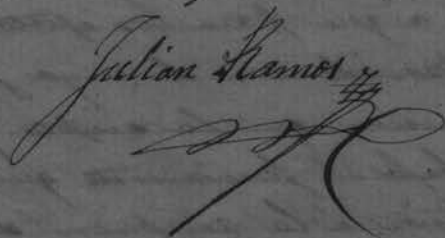 Julian Ramos